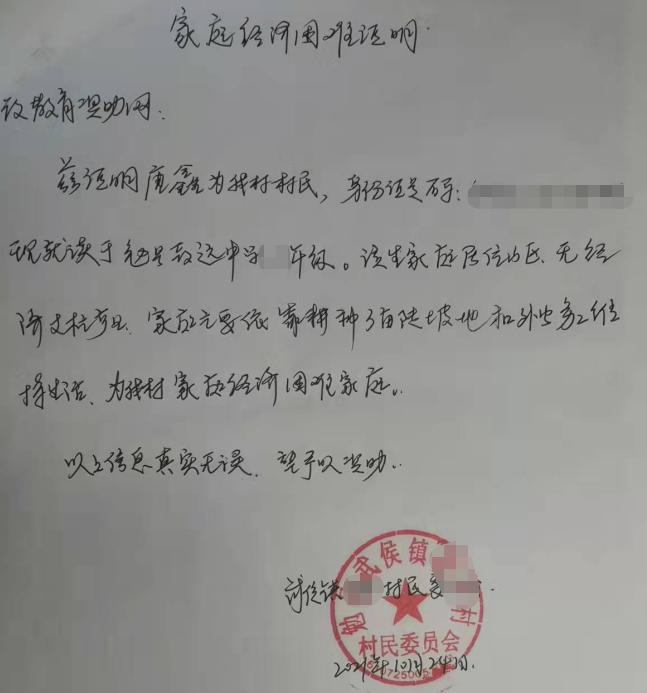 家庭经济困难证明
致教育资助网:
兹证明唐鑫为我村村民,身份证号码:
现就读于勉县致远中学 年级。该生家庭居住山区、无经
济支柱产业、家庭主要依靠耕种3亩陡坡地和外出务工维
持生活、为我村家庭经济困难家庭。
以上信息真实无误、望予以资助。
武侯镇 村民委
勉 武侯镇 村
村民委员会
2021年10月24日.